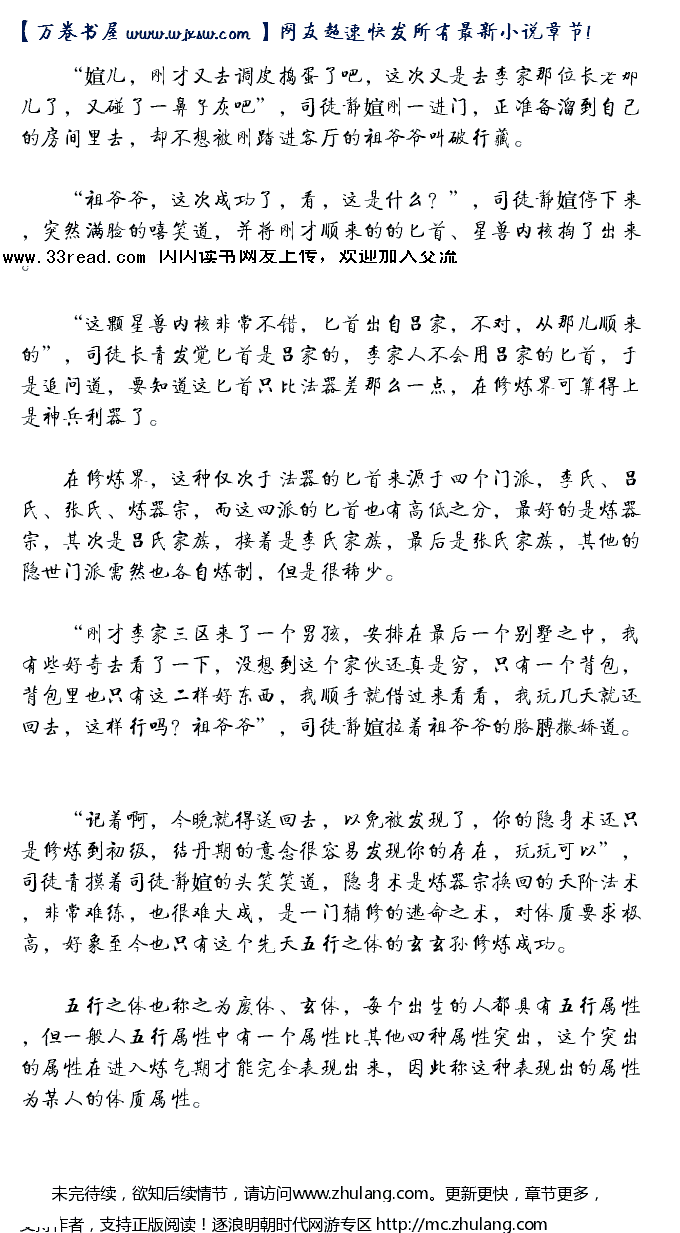 【万卷书屋 www.wjxsw.com 】网友超速快发所有最新小说章节!
“媗儿，刚才又去调皮捣蛋了吧，这次又是去李家那位长老那
儿了，又碰了一鼻子灰吧”，司徒静媗刚一进门，正准备溜到自己
的房间里去，却不想被刚踏进客厅的祖爷爷叫破行藏。
“祖爷爷，这次成功了，看，这是什么？”，司徒静媗停下来
，突然满脸的嘻笑道，并将刚才顺来的的匕首、星兽内核掏了出来
。
www.33read.com 闪闪读书网友上传，欢迎加入交流
“这颗星兽内核非常不错，匕首出自吕家，不对，从那儿顺来
的”，司徒长青发觉匕首是吕家的，李家人不会用吕家的匕首，于
是追问道，要知道这匕首只比法器差那么一点，在修炼界可算得上
是神兵利器了。
在修炼界，这种仅次于法器的匕首来源于四个门派，李氏、吕
氏、张氏、炼器宗，而这四派的匕首也有高低之分，最好的是炼器
宗，其次是吕氏家族，接着是李氏家族，最后是张氏家族，其他的
隐世门派需然也各自炼制，但是很稀少。
“刚才李家三区来了一个男孩，安排在最后一个别墅之中，我
有些好奇去看了一下，没想到这个家伙还真是穷，只有一个背包，
背包里也只有这二样好东西，我顺手就借过来看看，我玩几天就还
回去，这样行吗？祖爷爷”，司徒静媗拉着祖爷爷的胳膊撒娇道。
“记着啊，今晚就得送回去，以免被发现了，你的隐身术还只
是修炼到初级，结丹期的意念很容易发现你的存在，玩玩可以”，
司徒青摸着司徒静媗的头笑笑道，隐身术是炼器宗换回的天阶法术
，非常难练，也很难大成，是一门辅修的逃命之术，对体质要求极
高，好象至今也只有这个先天五行之体的玄玄孙修炼成功。
五行之体也称之为废体、玄体，每个出生的人都具有五行属性
，但一般人五行属性中有一个属性比其他四种属性突出，这个突出
的属性在进入炼气期才能完全表现出来，因此称这种表现出的属性
为某人的体质属性。
未完待续，欲知后续情节，请访问www.zhulang.com。更新更快，章节更多，
支持作者，支持正版阅读！逐浪明朝时代网游专区 http://mc.zhulang.com